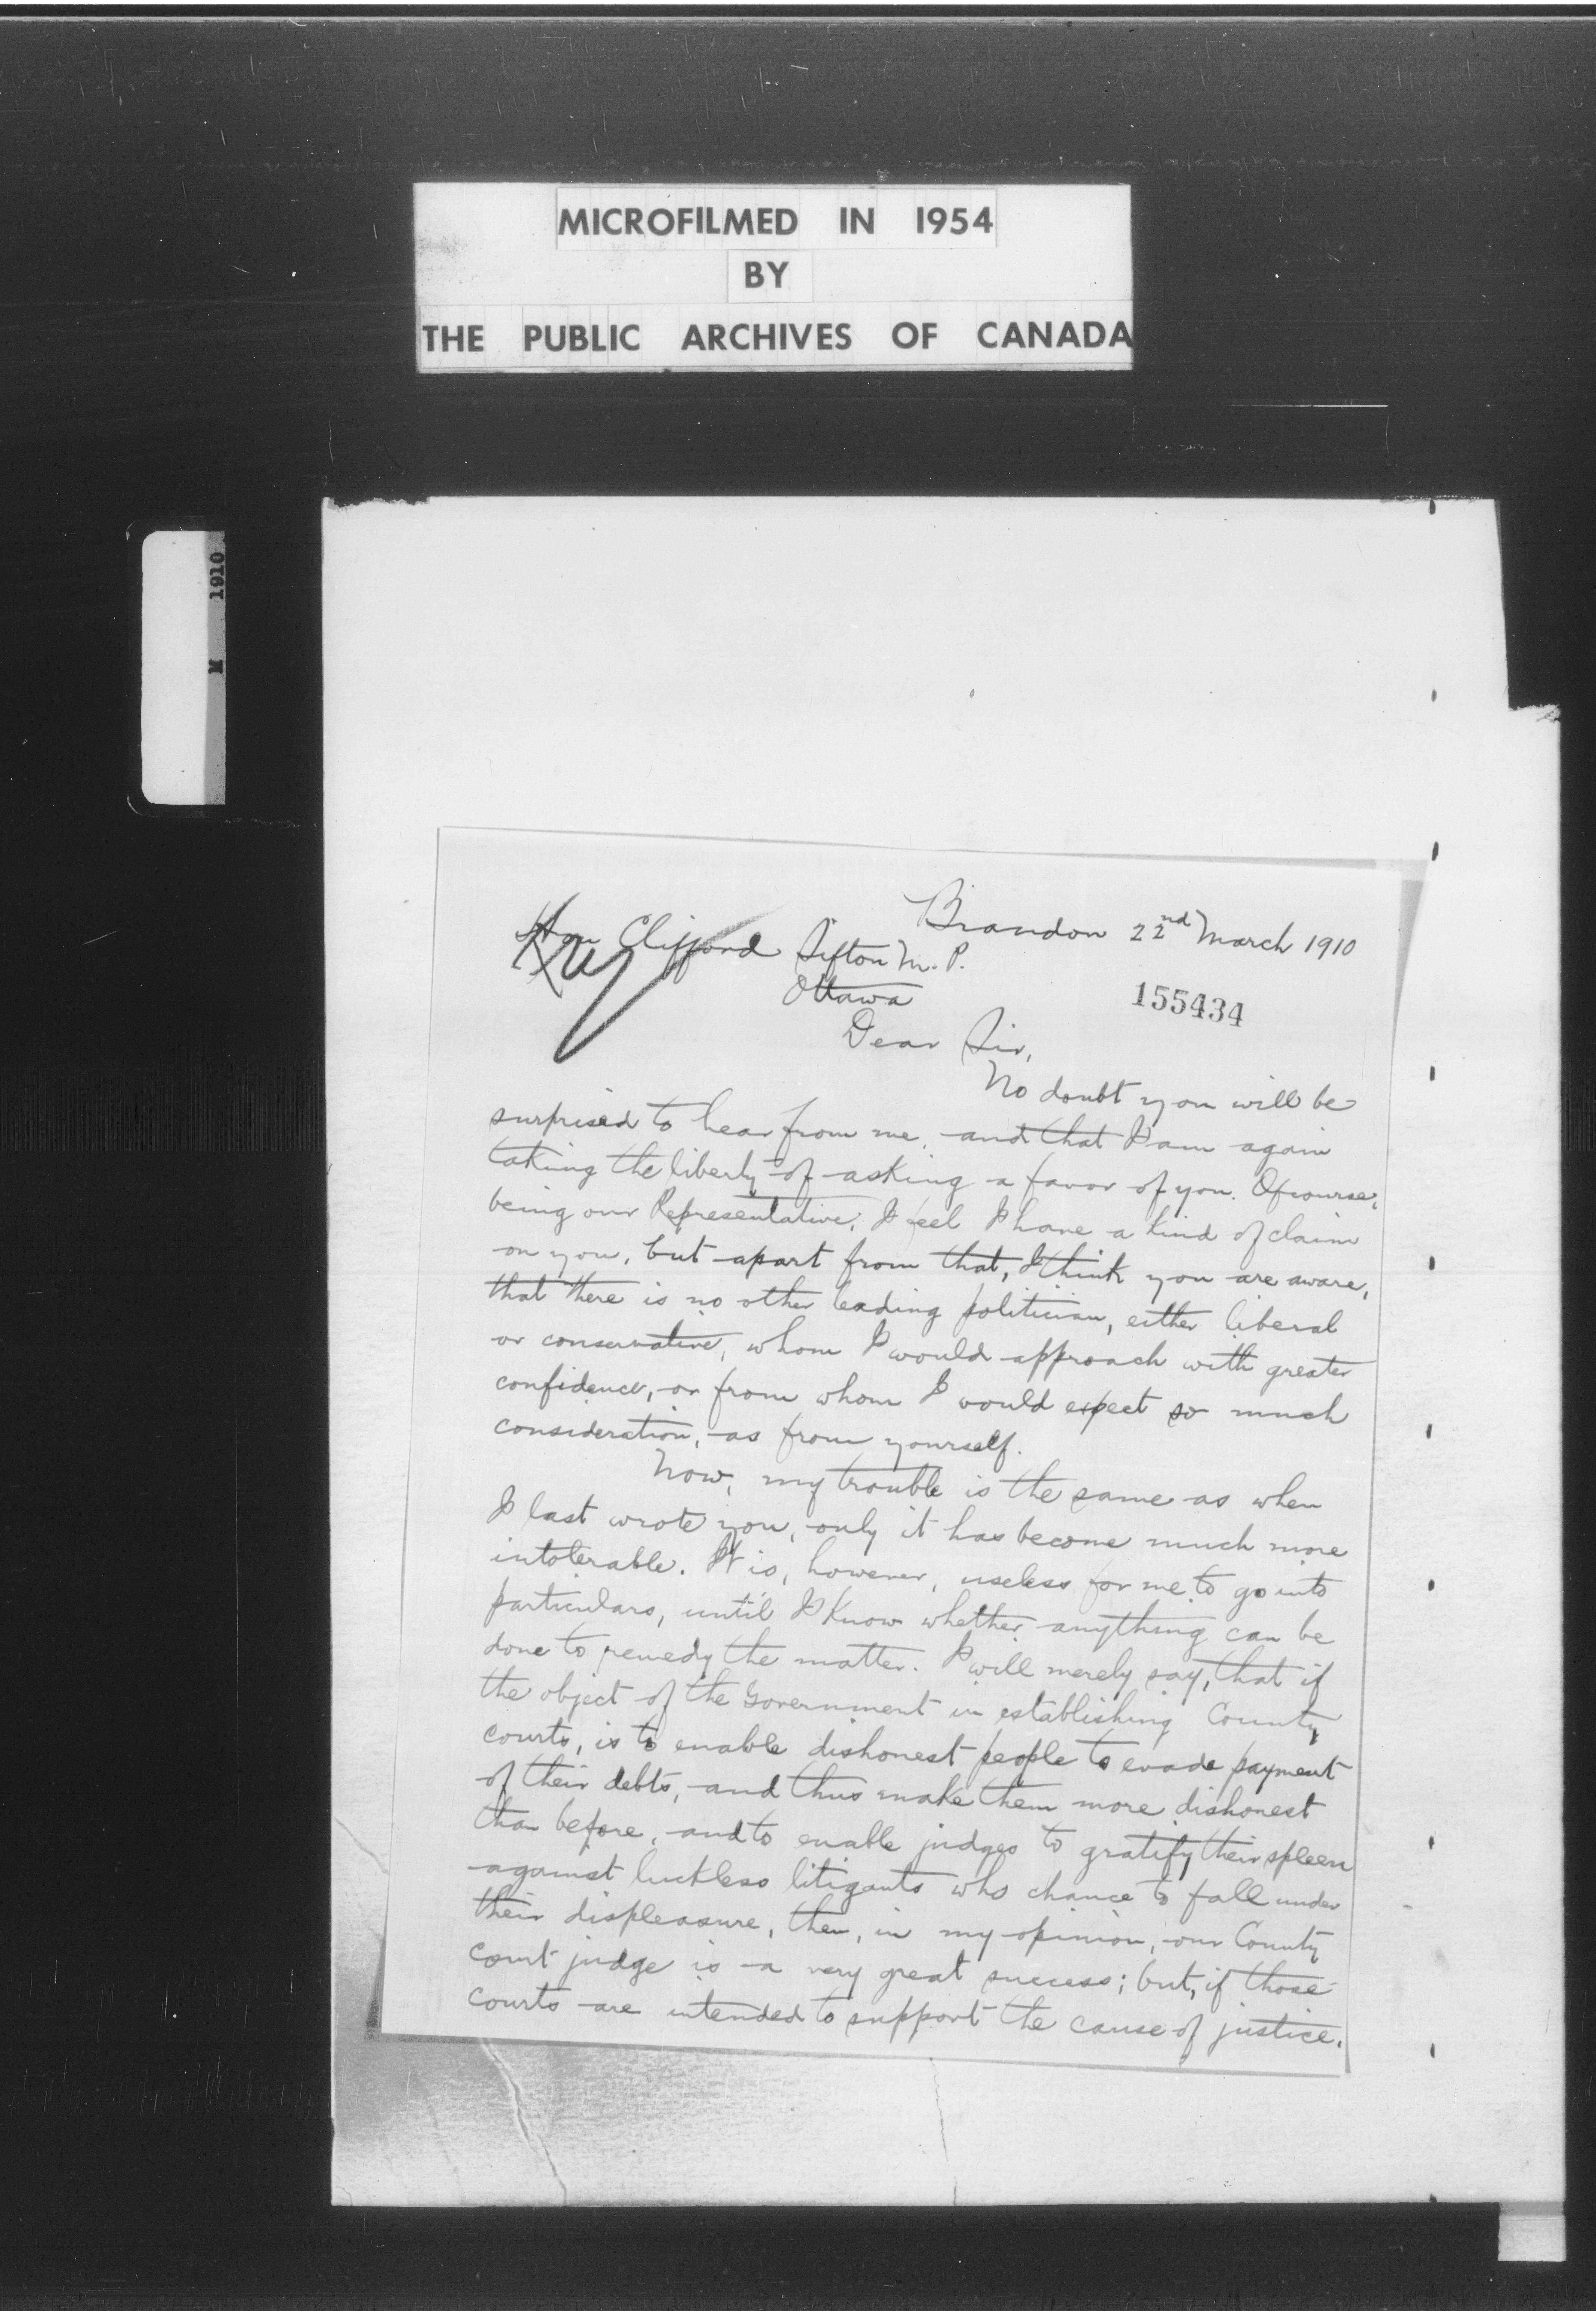 MICROFILMED IN 1954
BY
THE PUBLIC ARCHIVES OF CANADA
M 1910
Brandon 22nd March 1910
Hon Clifford Sifton M.P.
Ottawa
155434
Dear Sir,
No doubt you will be
surprised to hear from me, and that I am again
taking the liberty of asking a favor of you. Of course,
being our Representative, I feel I have a kind of claim
on you, but apart from that, I think you are aware,
that there is no other leading politician, either liberal
or conservative, whom I would approach with greater
confidence, or from whom I would expect so much
consideration, as from yourself.
Now, my trouble is the same as when
I last wrote you, only it has become much more
intolerable. It is, however, useless for me to go into
particulars, until I know whether anything can be
done to remedy the matter. I will merely say, that if
the object of the Government in establishing County
courts, is to enable dishonest people to evade payment
of their debts, and thus make them more dishonest
than before, and to enable judges to gratify their spleen
against luckless litigants who chance to fall under
their displeasure, then, in my opinion, our County
court judge is a very great success; but, if those
courts are intended to support the cause of justice,